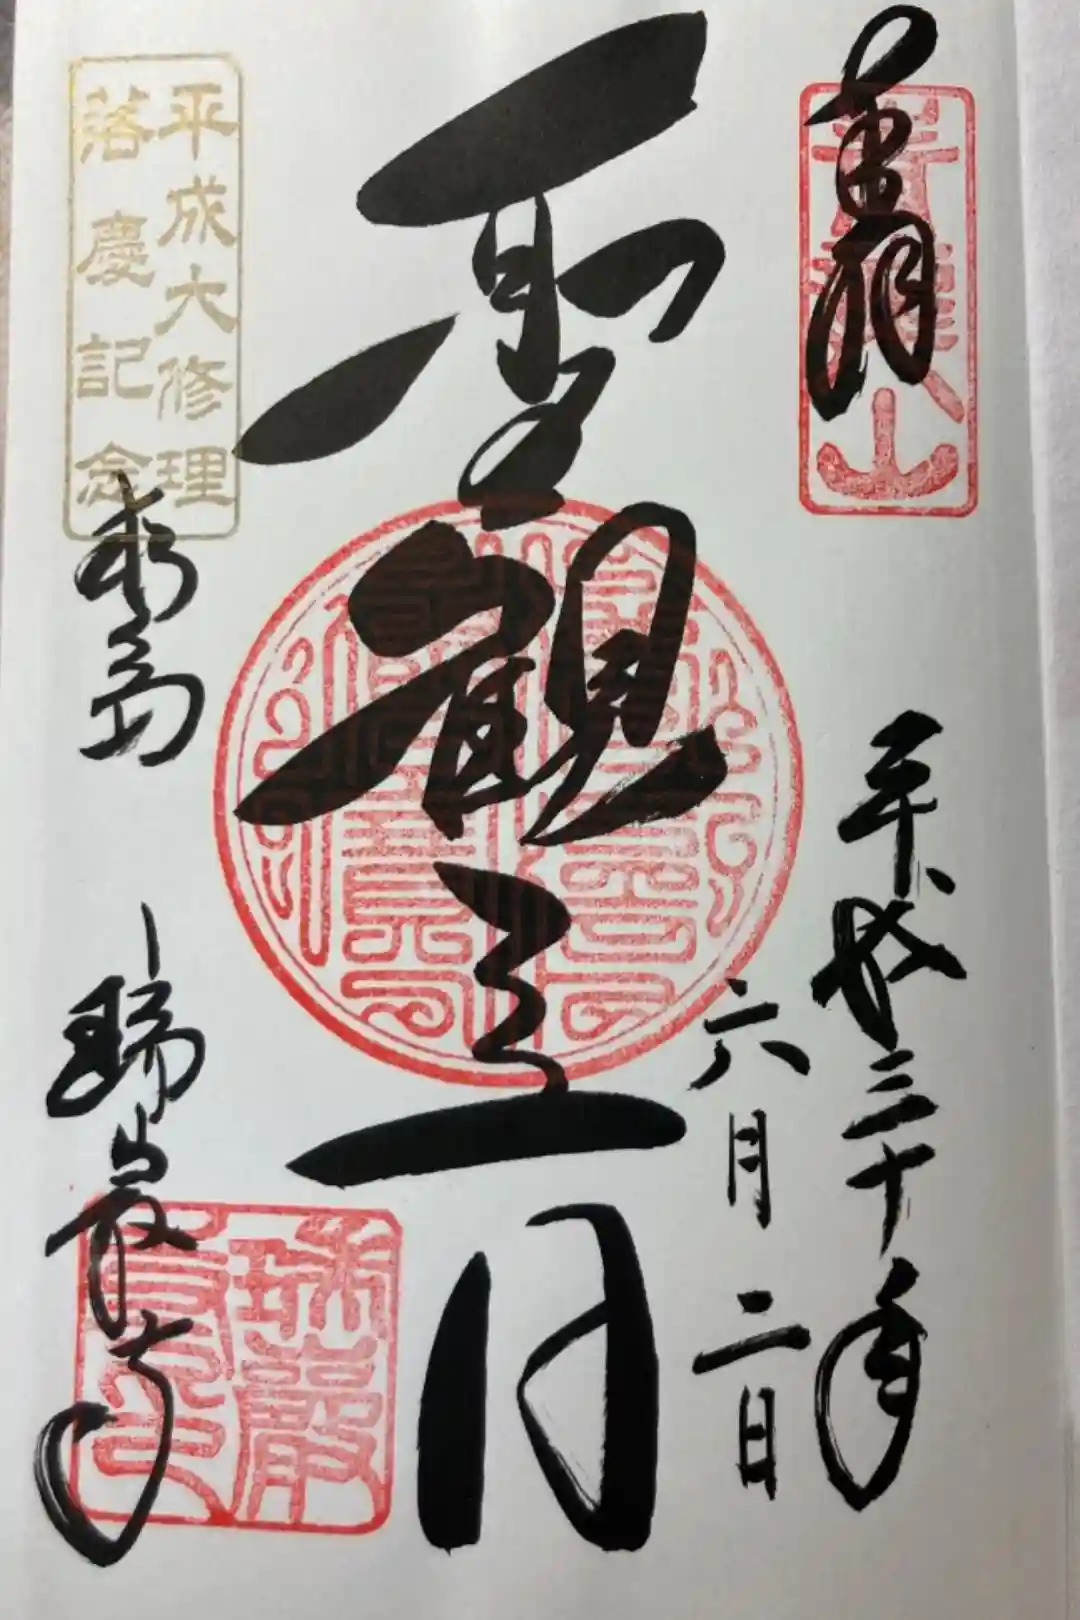 奉拝
青龍山
平成三十年
六月二日
聖観音
平成大修理
落慶記念
松島
瑞巌寺
瑞巌